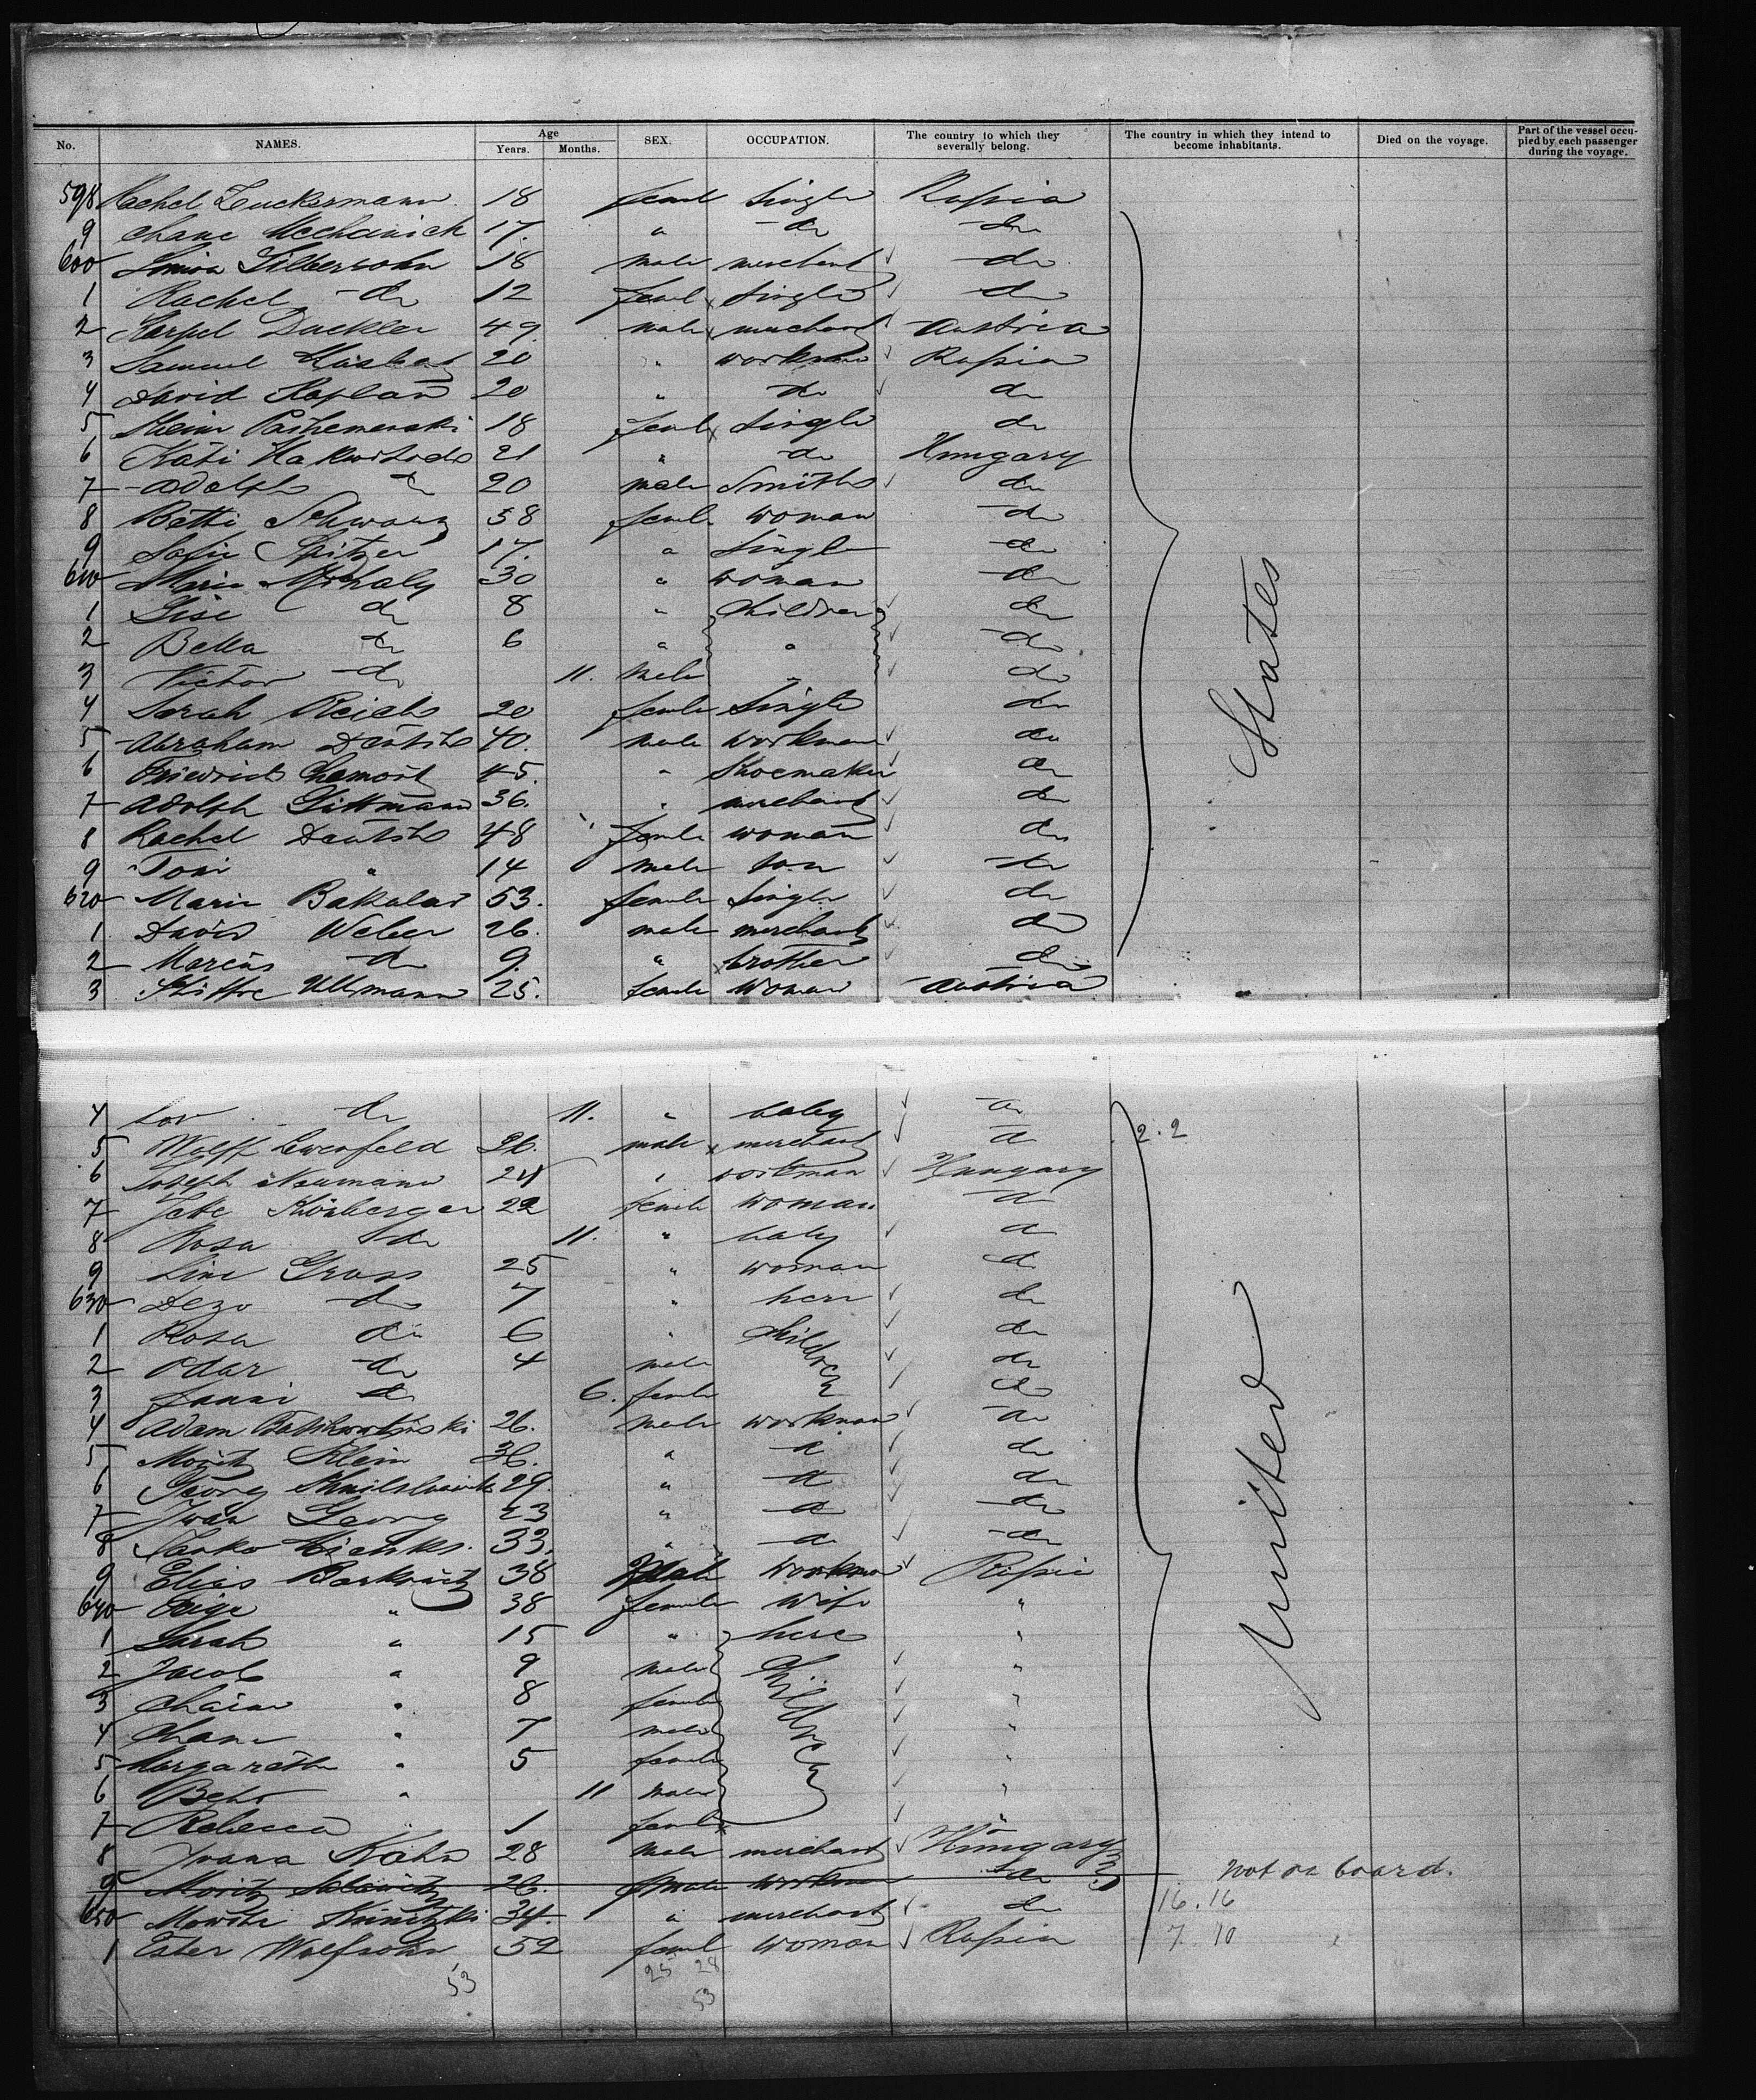 No. NAMES. Age Years. Months. SEX. OCCUPATION. The country to which they severally belong. The country in which they intend to become inhabitants. Died on the voyage. Part of the vessel occupied by each passenger during the voyage.
598 Rachel Zuckermann 18 femal Single Russia
9 Chane Mechanick 17. " do do
600 Silbersohn 18 male merchant do
1 Rachel do 12 femal Single do
2 Duckler 49. male merchant Austria
3 Samuel 20 " workman Russia
4 David Kaplan 20 " do do
5 18 female Single do
6 Kati 21 " do Hungary
7 Adolph do 20 male Smith do
8 Betti Schwarz 58 female woman do
9 Sofie Spitzer 17. " Single do
610 Marie Mihaly 30 " woman do
1 Gise do 8 " children do
2 Bella do 6 " " do
3 Victor do 11. male " do
4 Sarah Reich 20 female Single do
5 Abraham Deutsch 40. male workman do
6 Friedrich 45. " Shoemaker do
7 Adolph Gittmann 36. " merchant do
8 Rachel Deutsch 48 female woman do
9 Toni " 14 male son do
620 Marie Bakalar 53. female Single do
1 David Weber 26. male merchant do
2 Marcus do 9. " brother do
3 Ullmann 25. female Woman Austria
States
4 do 11. " baby do
5 Wolff Lewenfeld 26. male merchant do 2.2
6 Joseph Neumann 24 " workman Hungary
7 Jette 22 female woman do
8 Rosa do 11. " baby do
9 Line Gross 25 " woman do
630 Dezo do 7 " her do
1 Rosa do 6 " children do
2 Odar do 4 male do
3 Fanni do 6. female do
4 Adam 26. male workman do
5 Moritz Klein 36. " do do
6 Georg 29. " do do
7 Ivan Georg 23 " do do
8 33. " do do
9 Elias Barkowitz 38 Male workman Russia
640 Feige " 38 female wife "
1 Sarah " 15 " here "
2 Jacob " 9 male children "
3 Chaim " 8 female "
4 Chane " 7 male "
5 Margareth " 5 female "
6 " 11 male "
7 Rebecca " 1 female "
8 Kohn 28 male merchant Hungary
9 Moritz 26. male workman do not on board.
650 34. " merchant do 16.16
1 Ester Wolfsohn 52 femal woman Russia 7.10
United
53 25 28
53